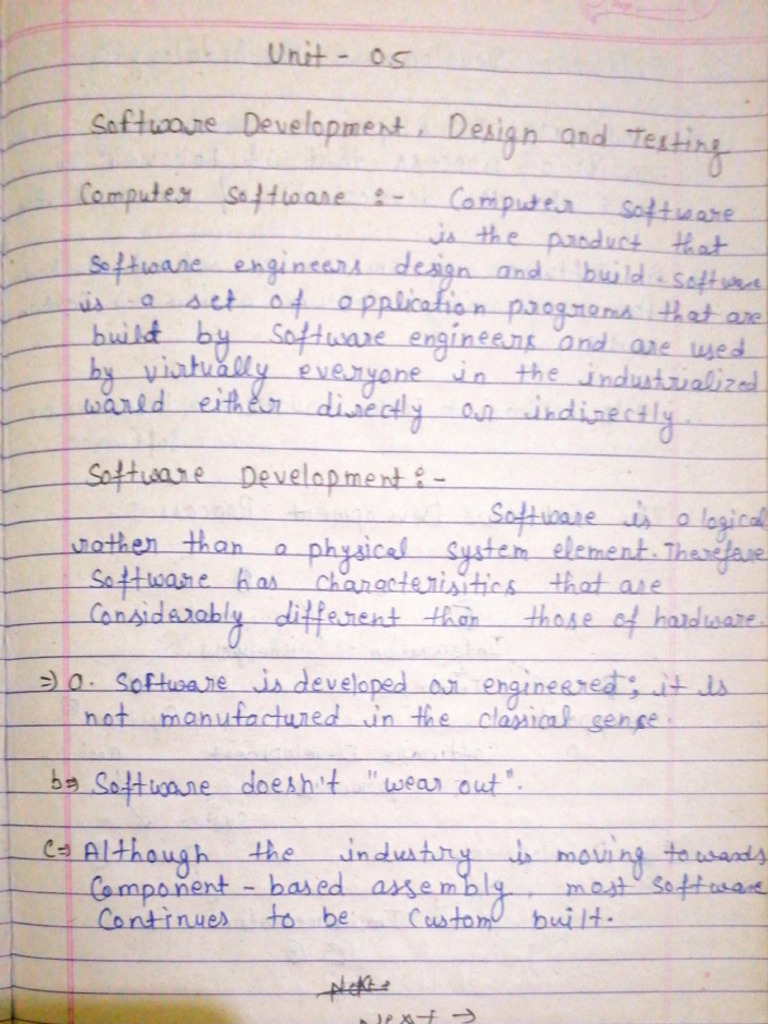 Unit - 05
Software Development, Design and Testing
Computer Software :- Computer software
is the product that
software engineers design and build. software
is a set of application programs that are
build by software engineers and are used
by virtually everyone in the industrialized
warld either directly or indirectly.
Software Development :-
Software is a logical
rather than a physical system element. Therefare
Software has characterisitics that are
Considerably different than those of hardware.
=> a. Software is developed or engineered; it is
not manufactured in the classical sense.
b=> Software doesn't "wear out".
C=> Although the industiry is moving towards
Component - based assembly, most software
Continues to be Custom built.
Next →